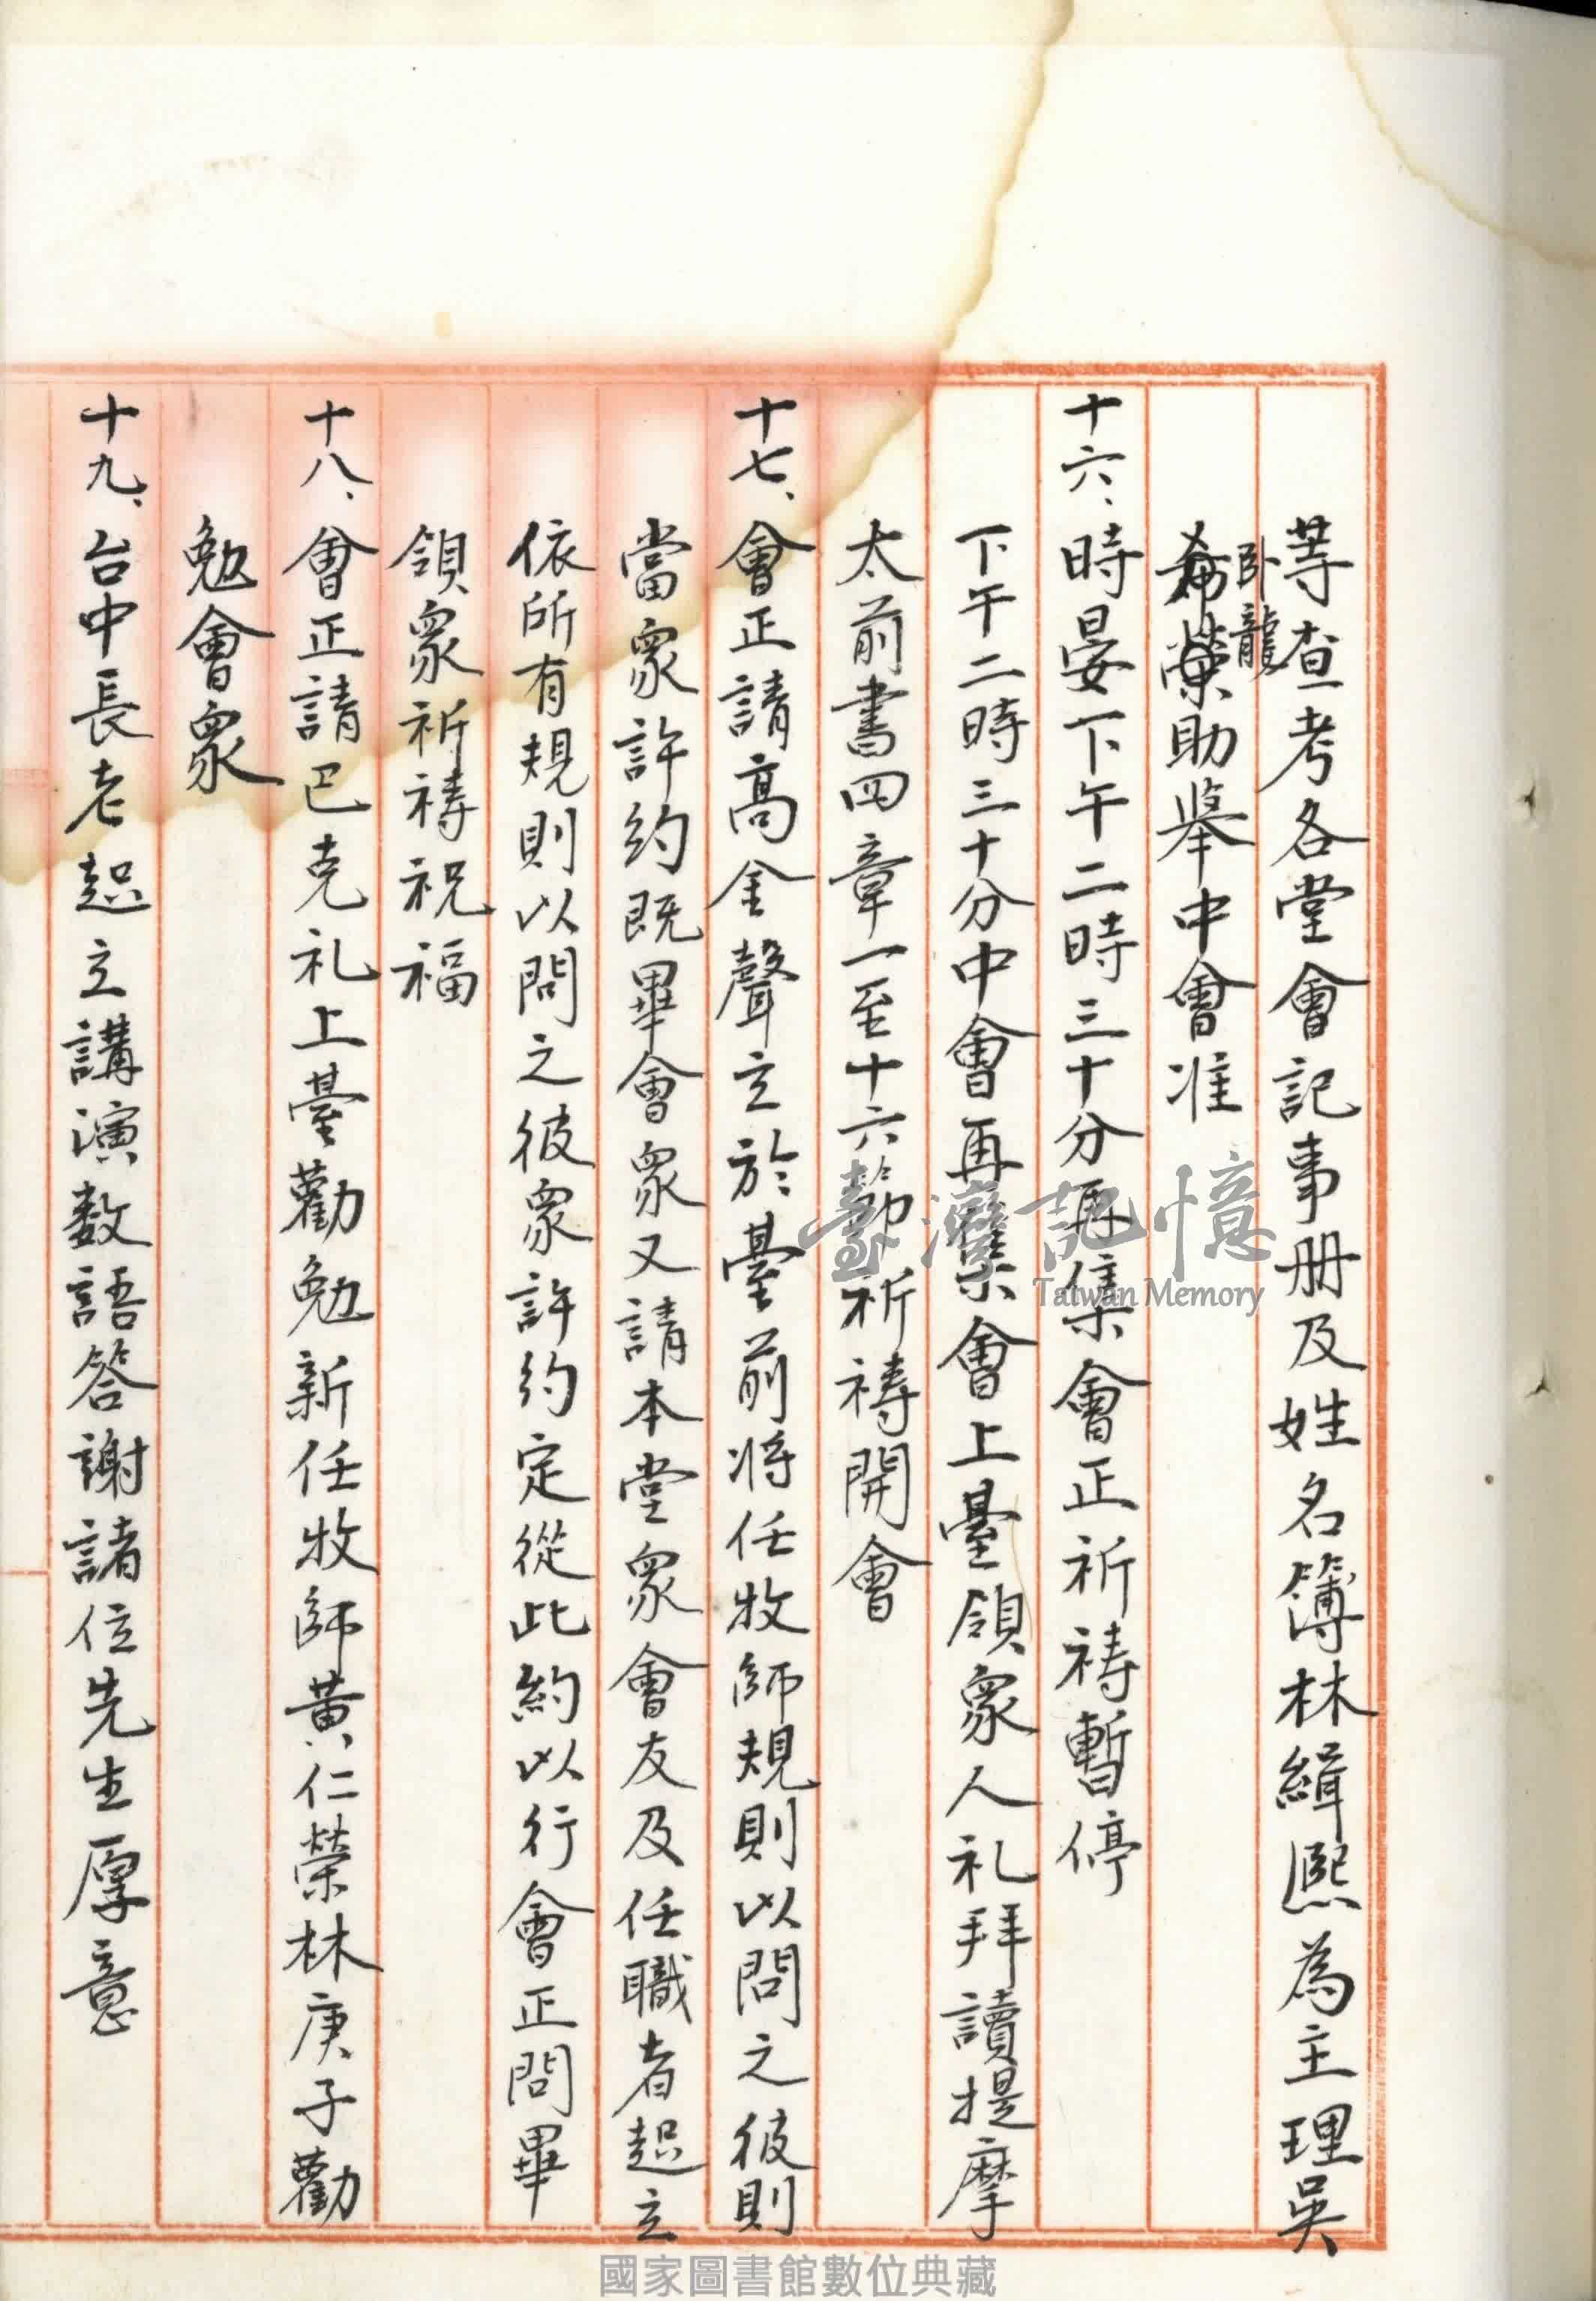 等查考各堂會記事册及姓名簿林緝熙為主理吳
卧龍
希榮助舉中會准
十六、時晏下午二時三十分再集會正祈禱暫停
下午二時三十分中會再集會上臺領衆人礼拜讀提摩
太前書四章一至十六節祈禱開會
十七、會正請高金聲立於臺前將任牧師規則以問之彼則
當衆許約既畢會衆又請本堂衆會友及任職者起立
依所有規則以問之彼衆許約定從此約以行會正問畢
領衆祈禱祝福
十八、會正請巴克礼上臺勸勉新任牧師黃仁榮林庚子勸
勉會衆
十九、台中長老起立講演数語答謝諸位先生厚意
臺灣記憶
Taiwan Memory
國家圖書館數位典藏